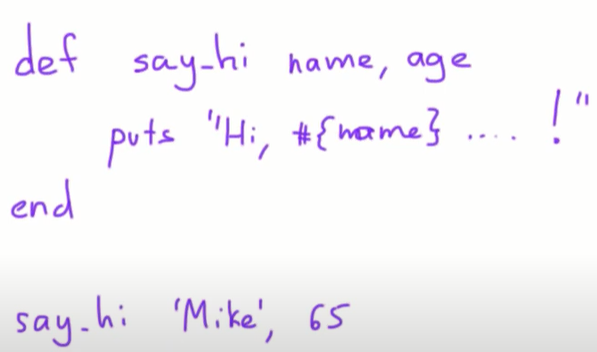 def say_hi name, age
puts "Hi, #{name} .... !"
end
say_hi 'Mike', 65